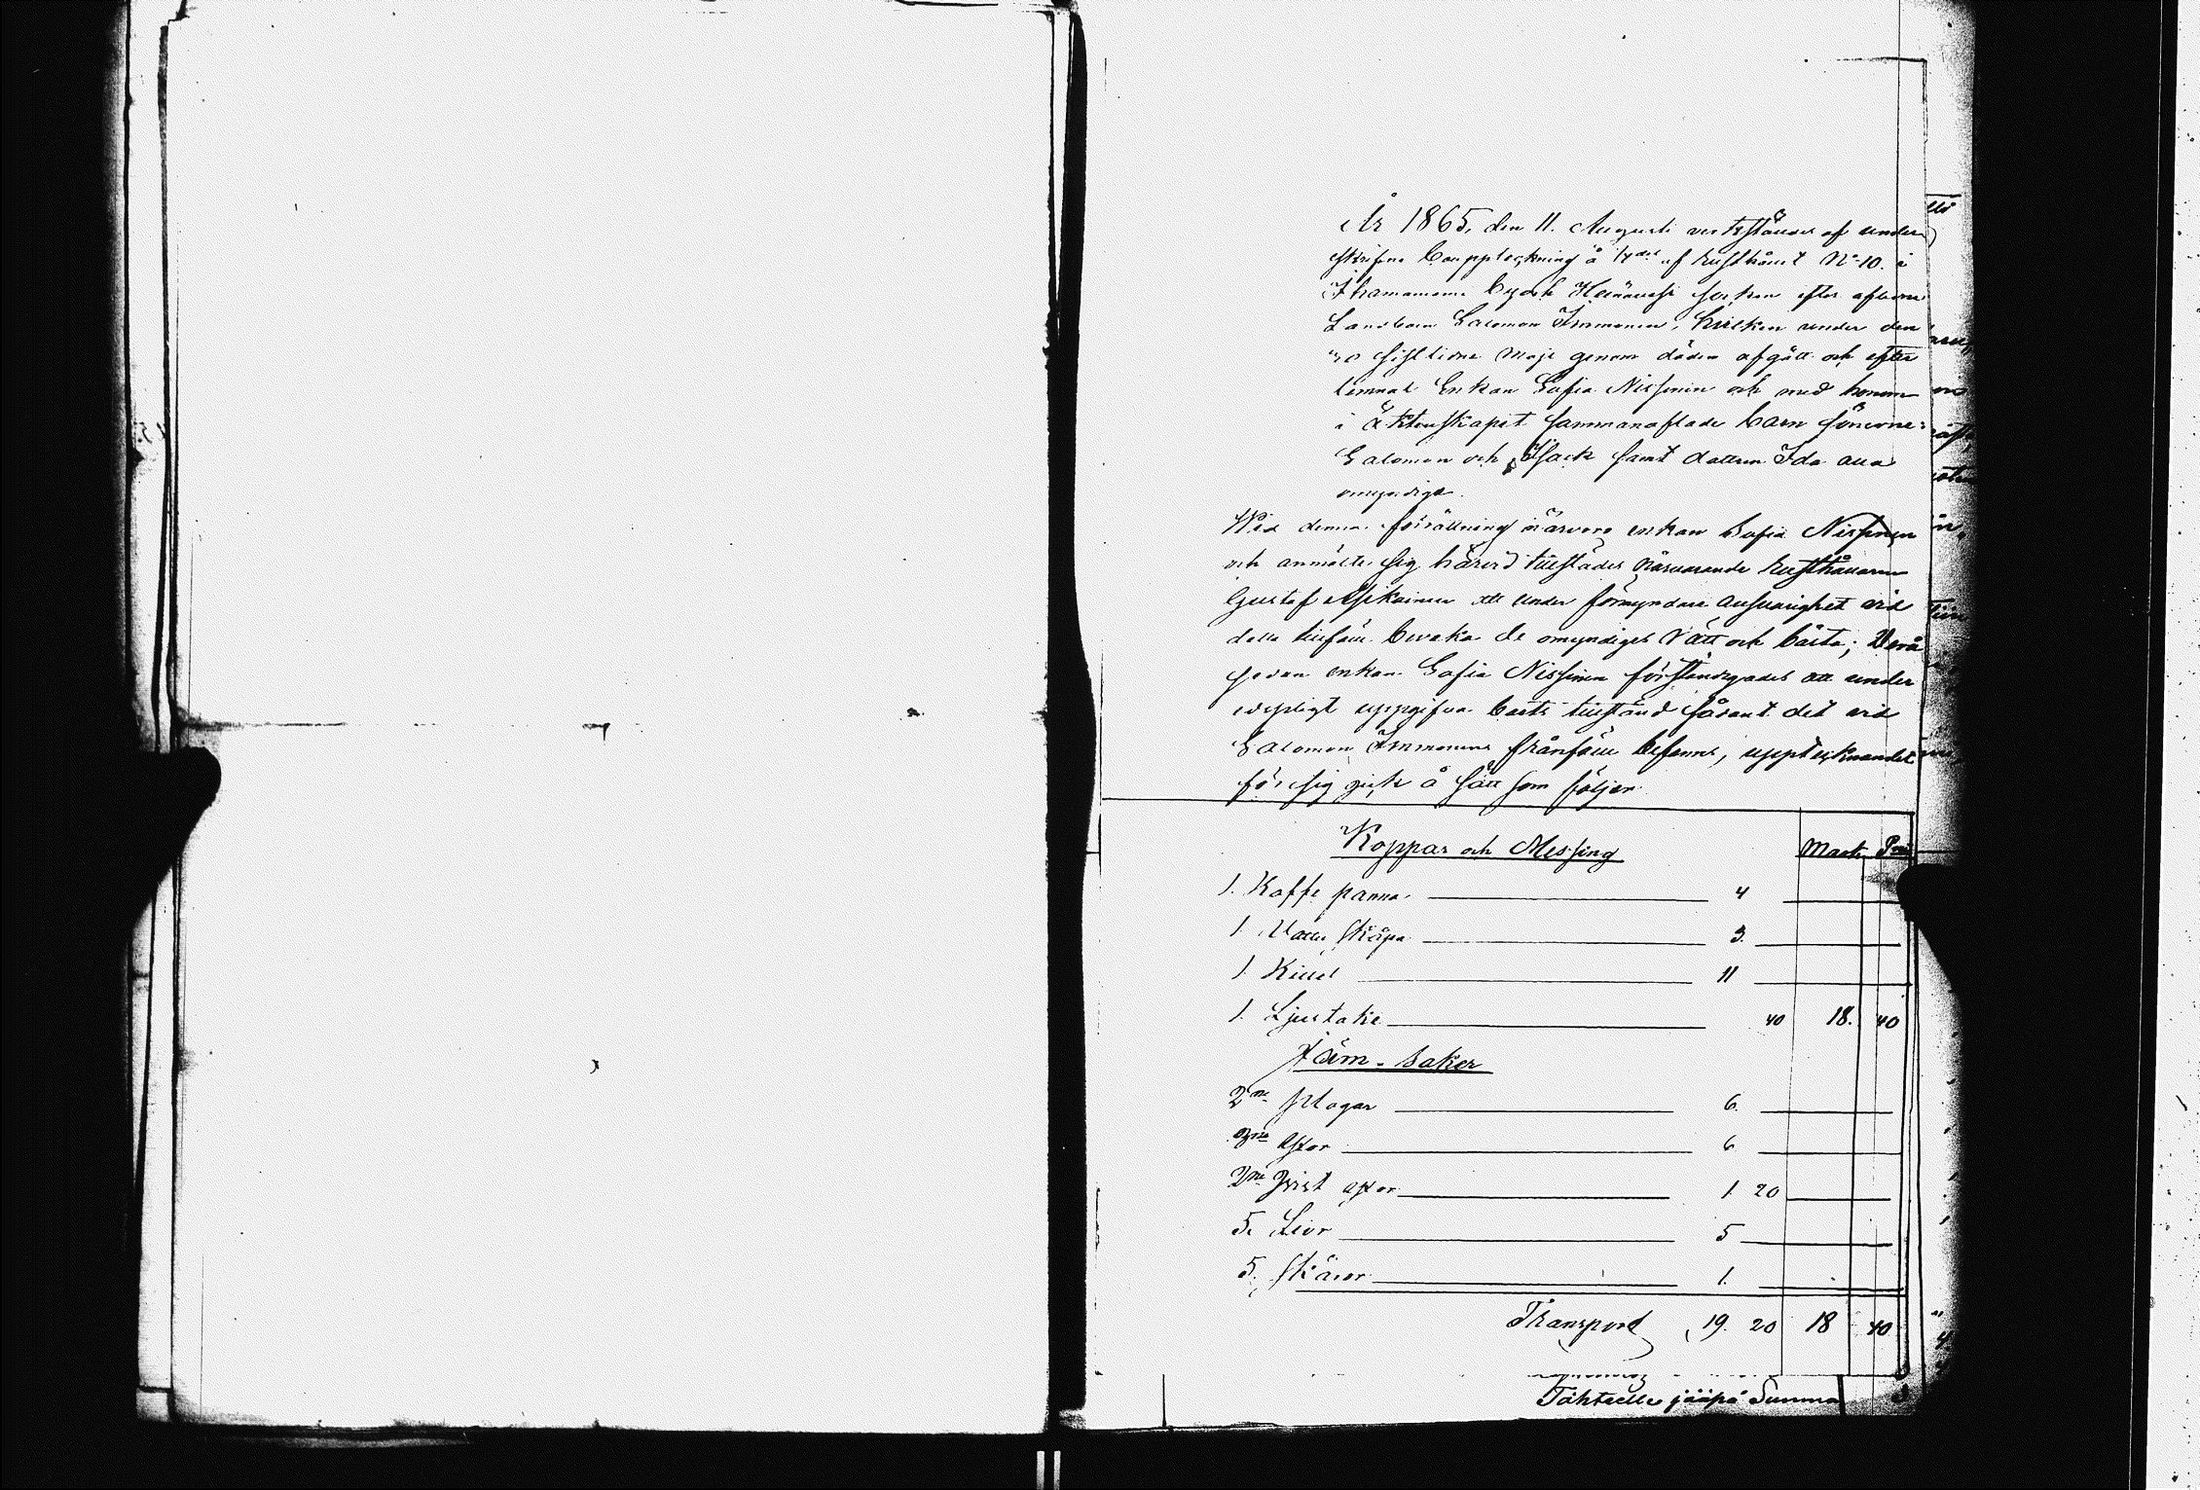 År 1865, den 11. Augusti verkstäldes af under
skrifne bouppteckning å 1/4del af rusthållet No 10. i
Ihamaniemi by och Heinävesi socken efter aflidne
Landboen Salomon Immonen, hvilken under den
30 sistlidne Maji genom döden afgått och efter
lämnat Enkan Sofia Nissinen och med honom
i äktenskapet sammanaflade barn sönerne:
Salomon och Isack samt dottren Ida alla
omyndiga.
Wid denna förrättning närvara enkan Sofia Nissinen
och anmälte sig härvid tillstädes närvarande Rusthållaren
Gustaf Asikainen att under förmyndare ansvarighet vid
detta tillfälle bevaka de omyndiges rätt och bästa; Derå
sedan enkan Sofia Nissinen förständigades att under
edspligt uppgifva boets tillstånd sådant det vid
Salomon Immonens frånfälle befanns, upptecknandet
för sig gick å sätt som följer
Koppar och Messing Mark Pni
1. Kaffe panna 4
1 Vatten skopa 3.
1. Kittel 11
1. Ljustake 40 18. 40
Järn-saker
2ne plogar 6.
3ne Yxor 6
2ne Brist yxor 1. 20
5. Liar 5
5. Skäror 1.
Transport 19. 20 18 40
Tähteelle jääpä Summa